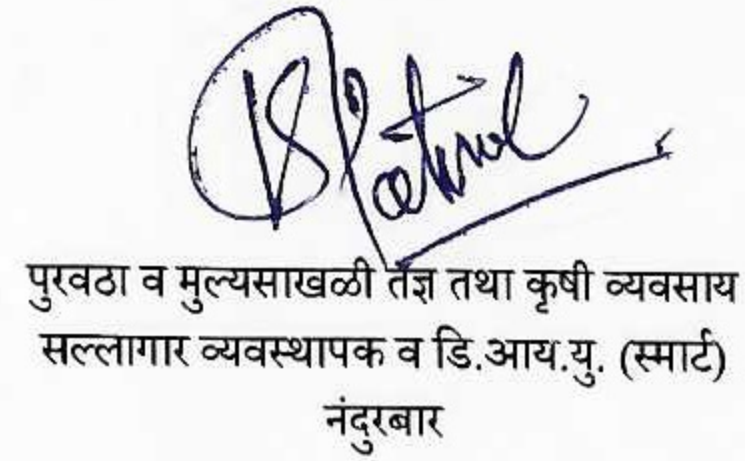 पुरवठा व मुल्यसाखळी तज्ञ तथा कृषी व्यवसाय
सल्लागार व्यवस्थापक व डि.आय.यु. (स्मार्ट)
नंदुरबार